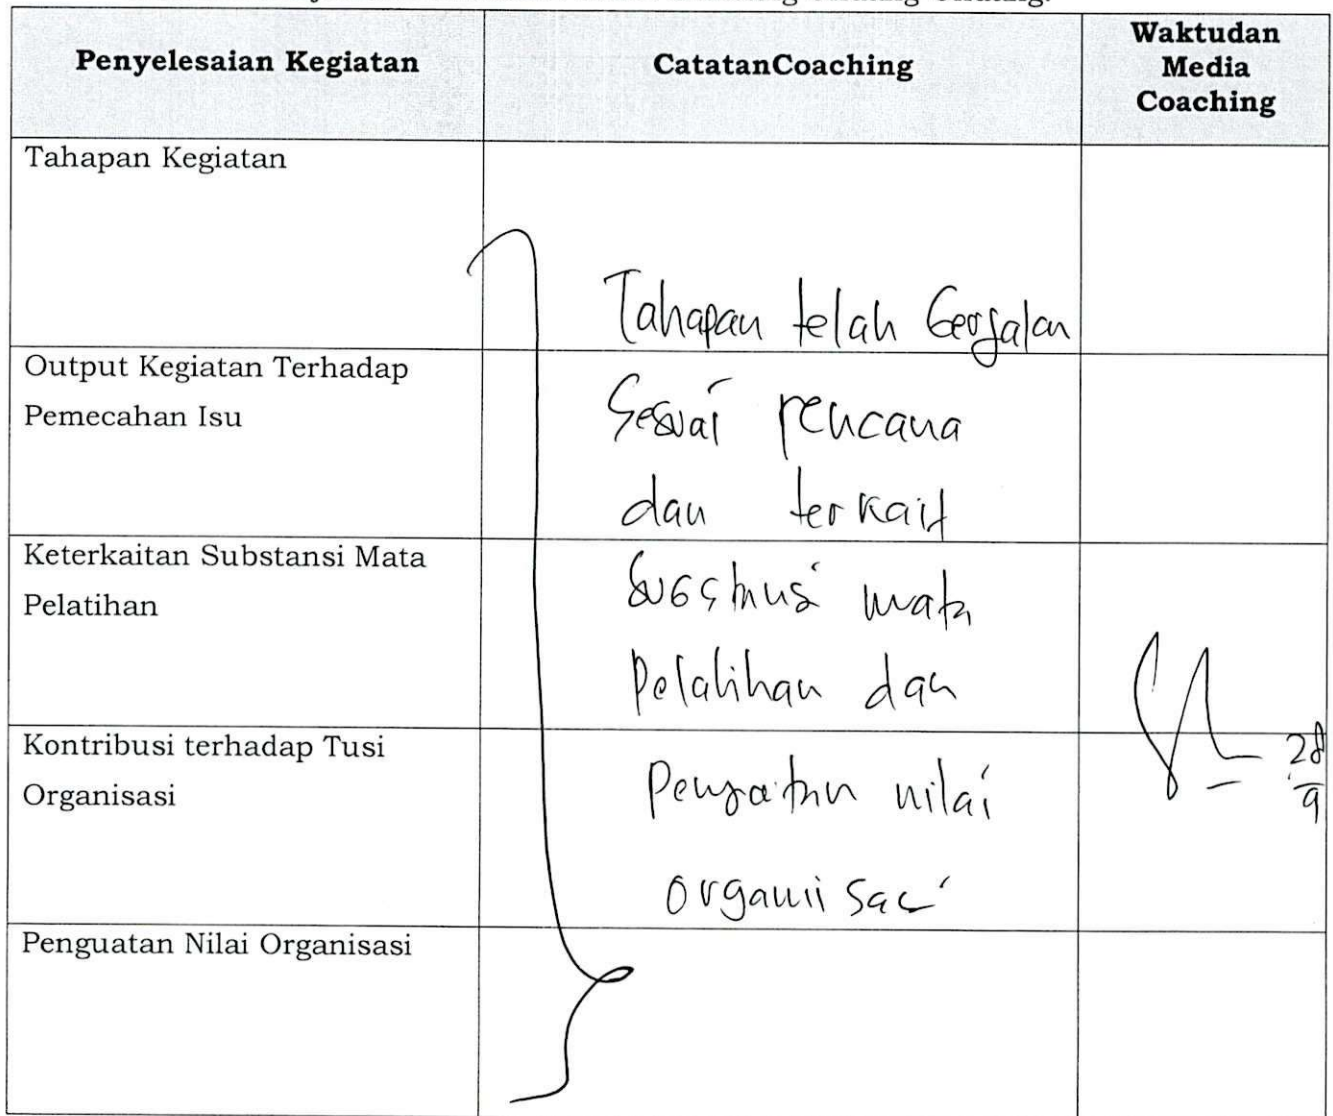 Penyelesaian Kegiatan
CatatanCoaching
Waktudan
Media
Coaching
Tahapan Kegiatan
Tahapan telah berjalan
Output Kegiatan Terhadap
Pemecahan Isu
Sesuai rencana
dan terkait
Keterkaitan Substansi Mata
Pelatihan
substansi mata
Pelatihan dan
Kontribusi terhadap Tusi
Organisasi
Penguatan nilai
organisasi
28
9
Penguatan Nilai Organisasi